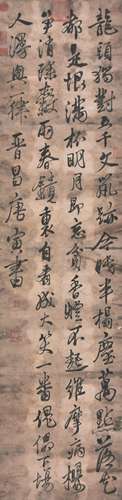 龍頭獨對五千文鼠跡今眠半榻塵萬點落花
都是恨滿杯明月即忘貧香燈不起維摩病櫻
筍消除穀雨春鏡裏自看成大笑一番傀儡下場
人漫興一律 晉昌唐寅書